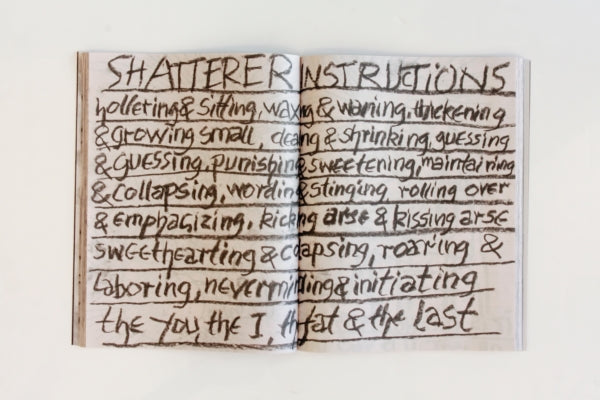 SHATTERER INSTRUCTIONS
hollering & sitting, waxing & waning, thickening
& growing small, & shrinking, guessing
& guessing, punishing sweetening, maintaining
& collapsing, wording & stinging, rolling over
& emphasizing, kicking arse & kissing arse
sweethearting & collapsing, roaring &
laboring, neverminding & initiating
the You, the I, the fat & the last